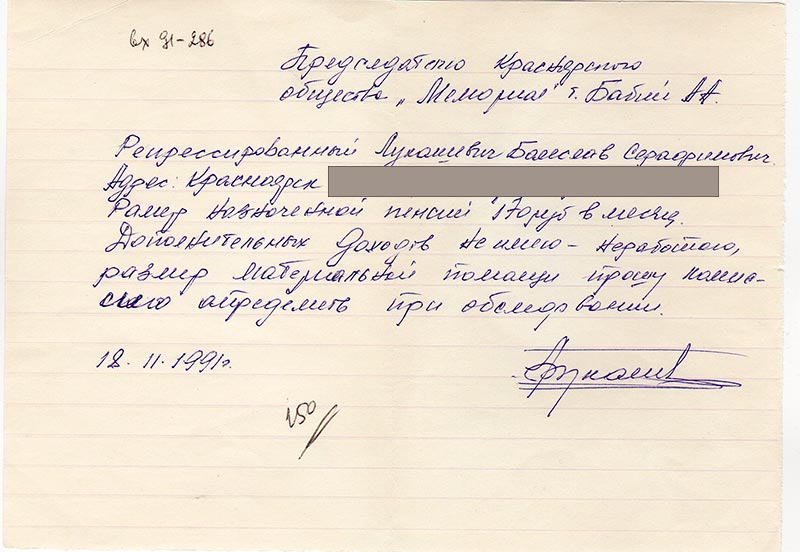 вх 91-286
Председателю Красноярского
общества „Мемориал" т. Бабий А А.
Репрессированный Лукашевич Болеслав Серафимович.
Адрес: Красноярск
Размер назначенной пенсии 170 руб в месяц.
Дополнительных доходов не имею – неработаю,
размер материальной помощи прошу комис-
сию определить при обследовании.
18. 11. 1991г.
150